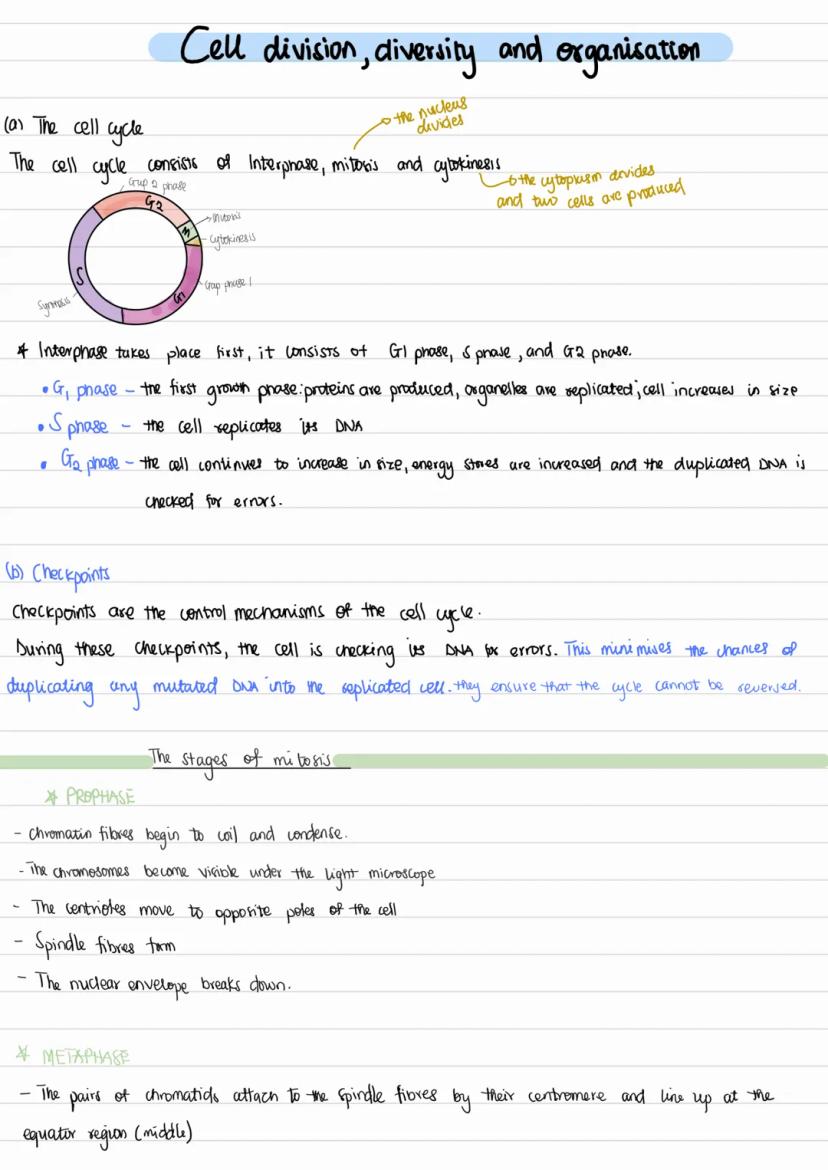 Cell division, diversity and organisation
(a) The cell cycle
the nucleus
divides
The cell cycle consists of Interphase, mitosis and cytokinesis
the cytoplasm divides
and two cells are produced
Gap 2 phase
G2
Mitosis
M
Cytokinesis
S
Gap phase 1
G1
Synthesis
* Interphase takes place first, it consists of G1 phase, S phase, and G2 phase.
• G1 phase – the first growth phase: proteins are produced, organelles are replicated; cell increases in size
• S phase – the cell replicates its DNA
• G2 phase – the cell continues to increase in size, energy stores are increased and the duplicated DNA is
checked for errors.
(b) Checkpoints
Checkpoints are the control mechanisms of the cell cycle.
During these checkpoints, the cell is checking its DNA for errors. This minimises the chances of
duplicating any mutated DNA into the replicated cell. they ensure that the cycle cannot be reversed.
The stages of mitosis
* PROPHASE
- Chromatin fibres begin to coil and condense.
- The chromosomes become visible under the light microscope
- The centrioles move to opposite poles of the cell
- Spindle fibres form
- The nuclear envelope breaks down.
* METAPHASE
- The pairs of chromatids attach to the spindle fibres by their centromere and line up at the
equator region (middle)